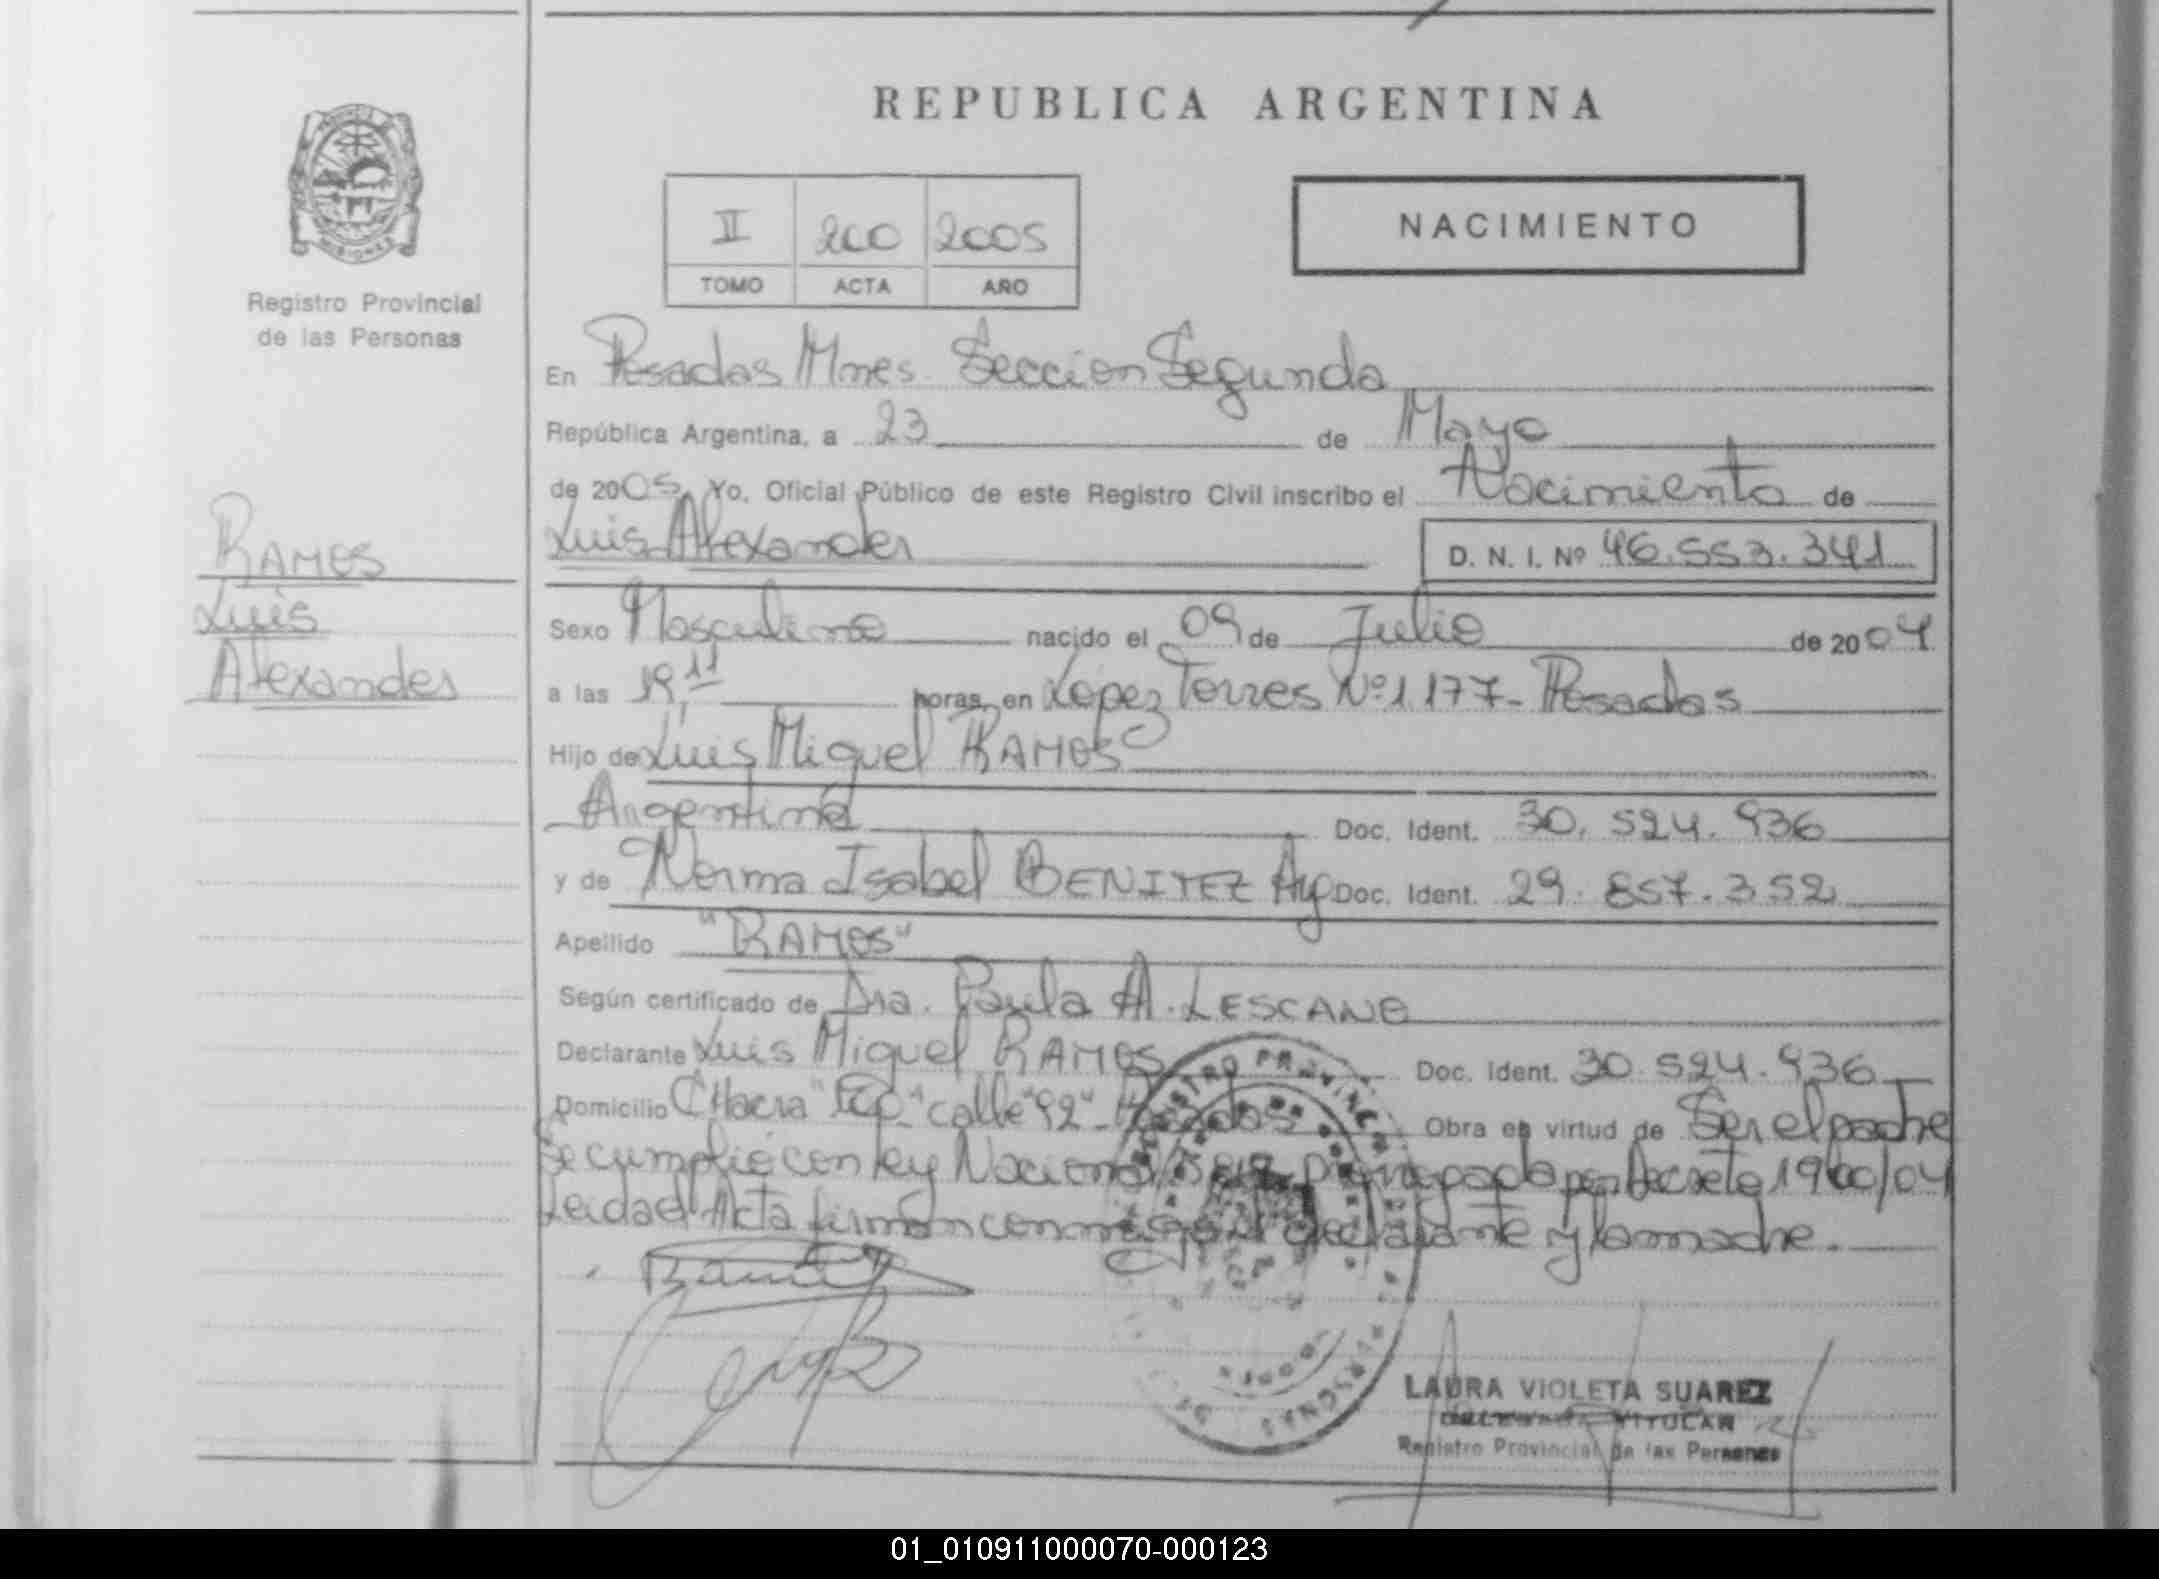 REPUBLICA ARGENTINA
II 200 2005
TOMO ACTA AÑO
NACIMIENTO
Registro Provincial
de las Personas
RAMOS
Luis
Alexander
En Posadas Mnes. Sección Segunda
República Argentina, a 23 de Mayo
de 2005, Yo, Oficial Público de este Registro Civil inscribo el Nacimiento de
Luis Alexander D. N. I. Nº 46.553.341
Sexo Masculino nacido el 09 de Julio de 2004
a las 19,11 horas, en Lopez Torres Nº 1177- Posadas
Hijo de Luis Miguel RAMOS
Argentina Doc. Ident. 30.524.936
y de Norma Isabel BENITEZ Arg Doc. Ident. 29.857.352
Apellido "RAMOS"
Según certificado de Dra. Paula A. LESCANO
Declarante Luis Miguel RAMOS Doc. Ident. 30.524.936
Domicilio CHacra calle "92"- Posadas Obra en virtud de Ser el padre
Se cumplió con ley Nacional por Decreto 1900/04
Leida el Acta firman conmigo el declarante y la madre.
REGISTRO PROVINCIAL DE LAS PERSONAS
LAURA VIOLETA SUAREZ
Registro Provincial de las Personas
01_010911000070-000123